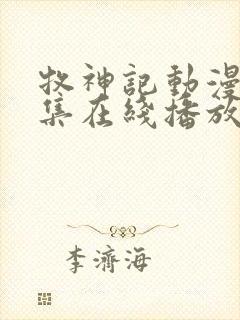 牧神記動漫
集在綫播放
李濟海